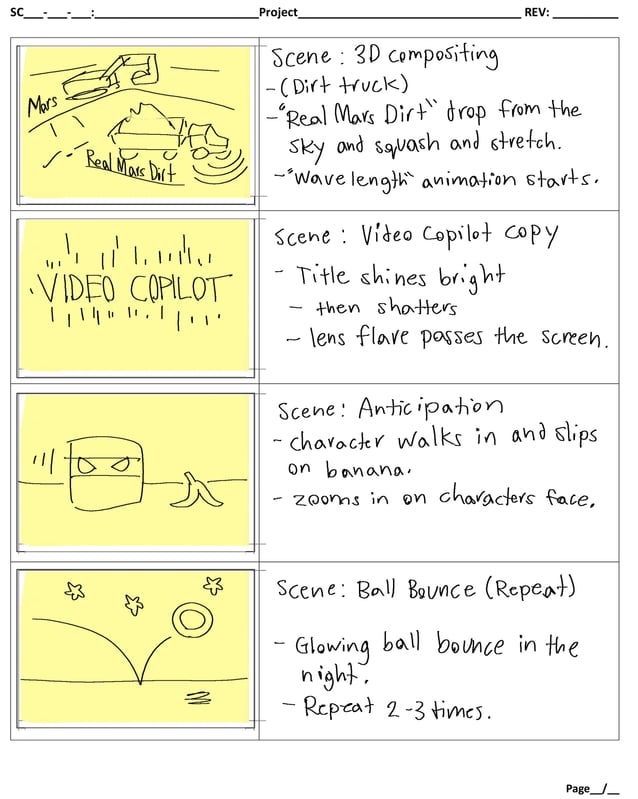 SC___-___-___:__________________________Project___________________________________ REV: __________
Mars
Real Mars Dirt
Scene : 3D compositing
- (Dirt truck)
- "Real Mars Dirt" drop from the
sky and squash and stretch.
- "Wave length" animation starts.
VIDEO COPILOT
Scene : Video Copilot copy
- Title shines bright
- then shatters
- lens flare passes the screen.
Scene: Anticipation
- character walks in and slips
on banana.
- zooms in on characters face.
Scene: Ball Bounce (Repeat)
- Glowing ball bounce in the
night.
- Repeat 2-3 times.
Page__/__